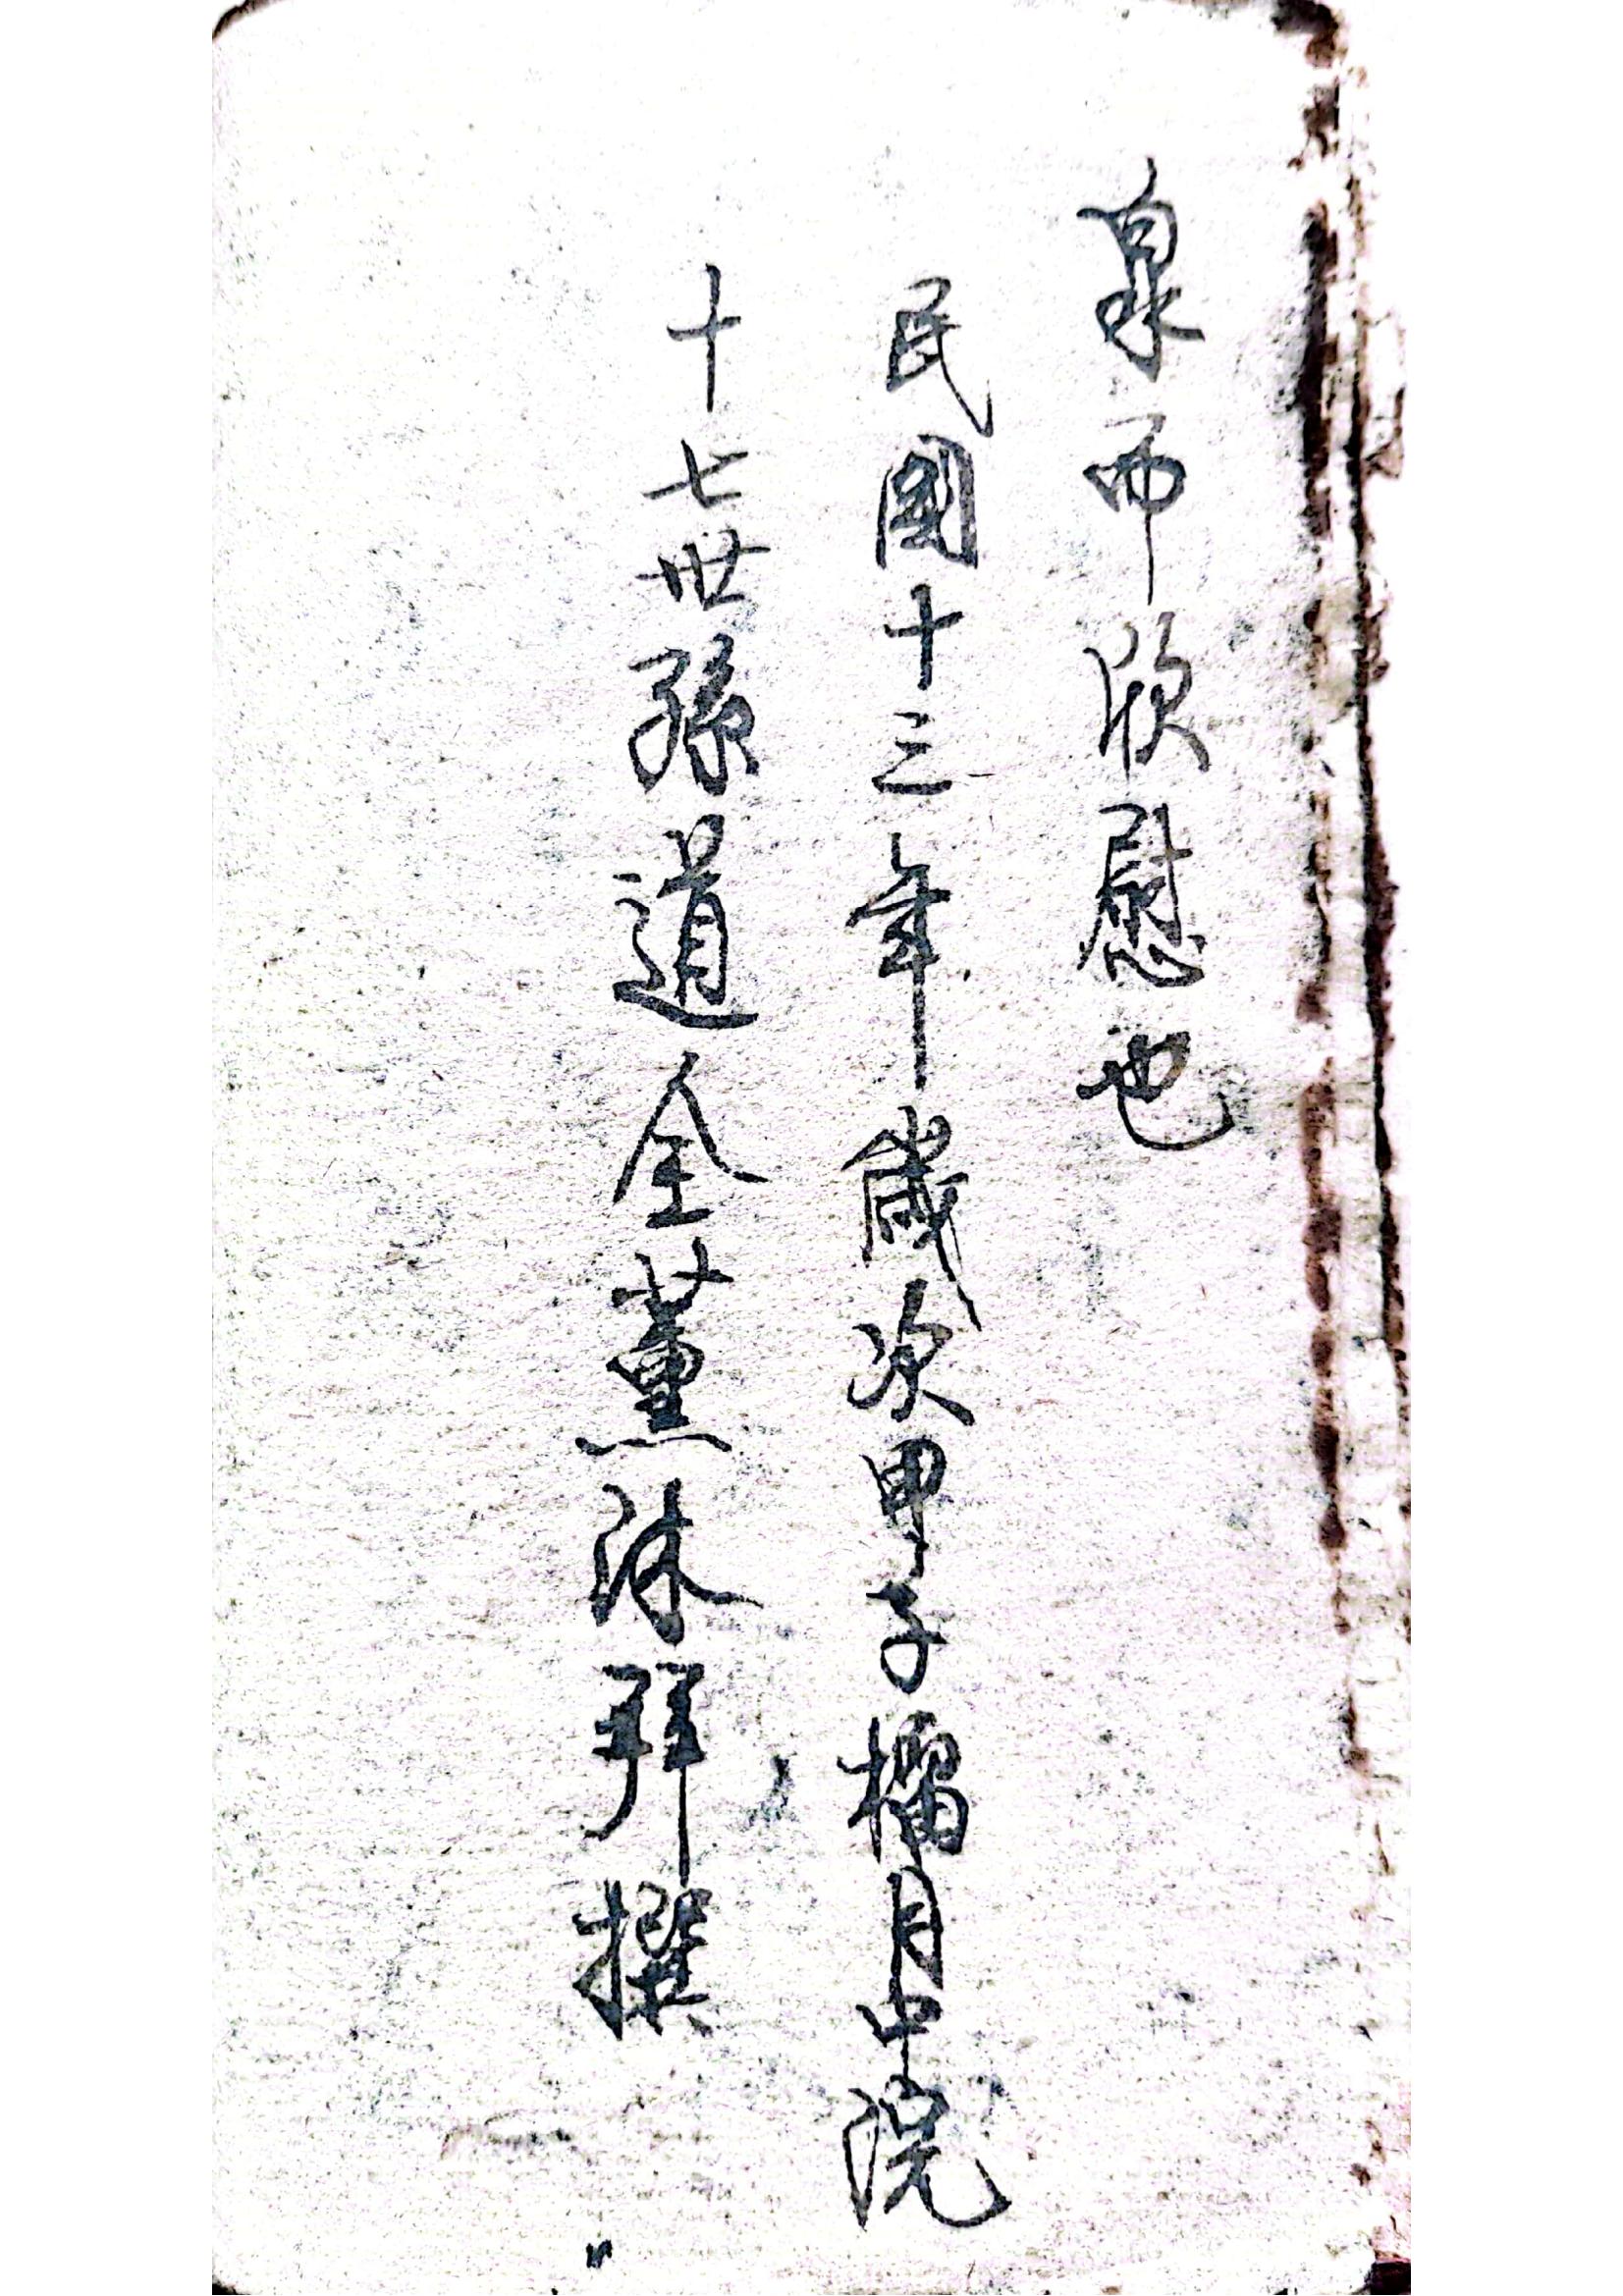 泉而欣慰也
民國十三年歲次甲子榴月中浣
十七世孫道全薰沐拜撰